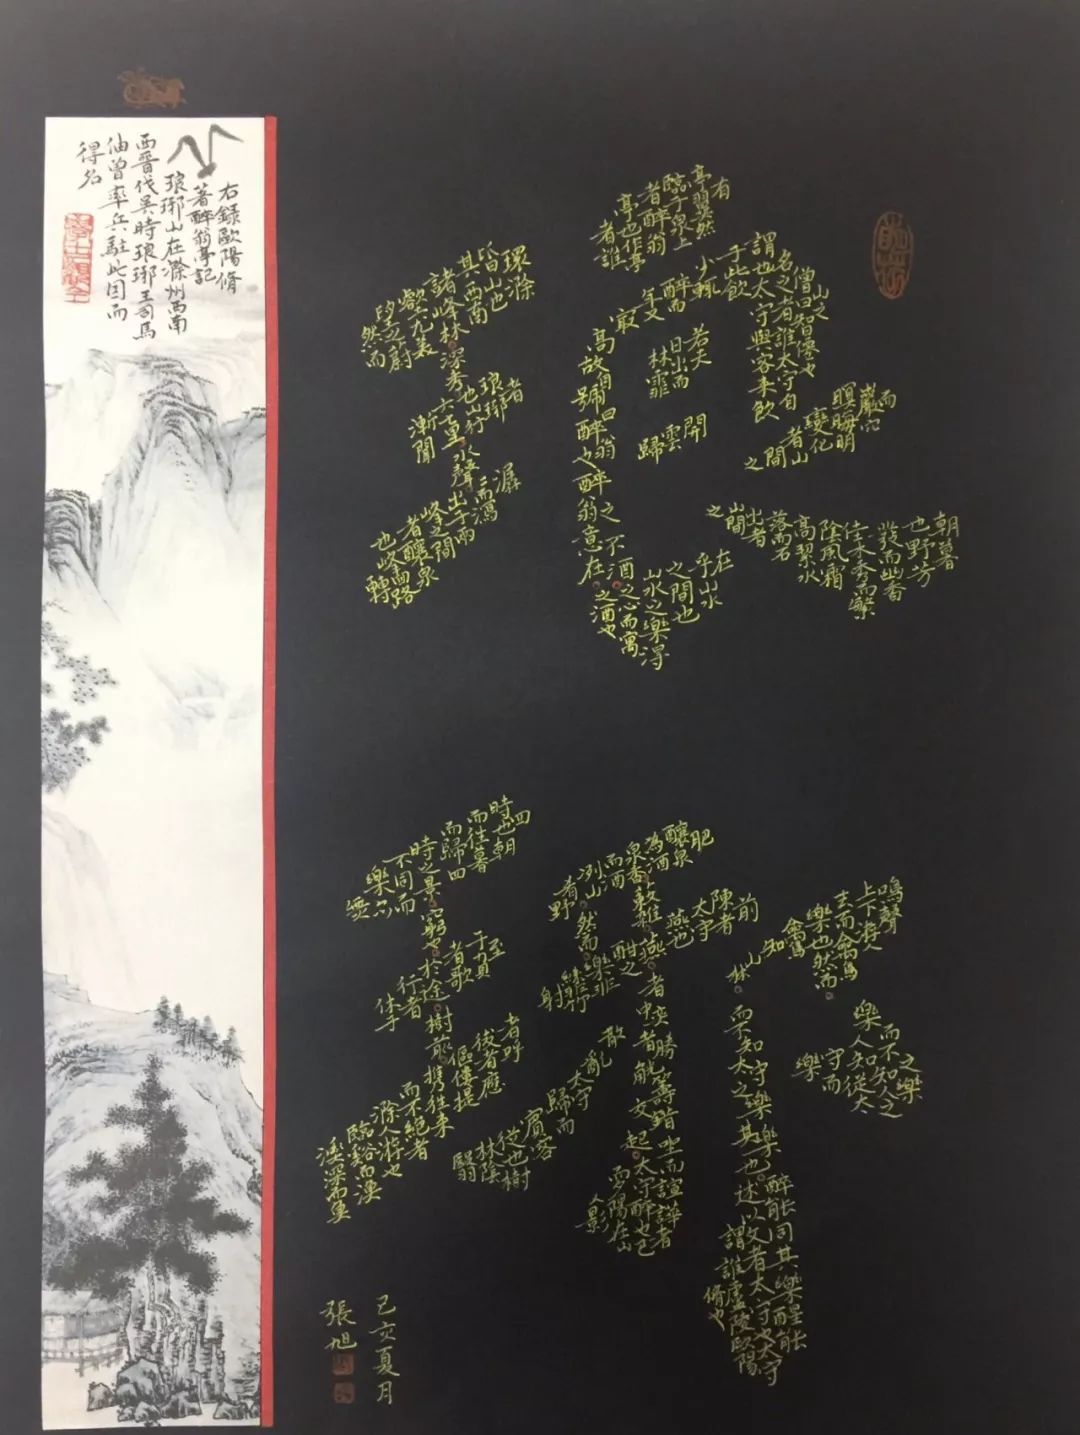 右錄歐陽脩
著醉翁亭記
琅琊山在滁州西南
西晉伐吳時琅琊王司馬
伷曾率兵駐此因而
得名
環滁
皆山也
其西南
諸峰林
壑尤美
望之蔚
然而
深秀者
琅琊
也山行
六七里
漸聞
水聲
潺
〻而瀉
出于兩
峰之間
者釀泉
也峰回路
轉
有
亭翼然
臨于泉上
者醉翁
亭也作亭
者誰
山之
僧曰智僊也
名之者誰太守自
謂也太守與客來飲
于此飲
少輒
醉而
年又
最
高故自
號曰醉翁
也醉翁之意
不在酒
在
乎山水
之間也
山水之樂得
之心而寓
之酒也
若夫
日出而
林霏
開
雲
歸
而
巖穴
暝晦明
變化
者山
間
之
朝暮
也野芳
發而幽香
佳木秀而繁
陰風霜
高絜水
落而石
出者
山間
之
四
時也朝
而往暮
而歸四
時之景
不同而
樂亦
無
窮也
至
于負
者歌
於途
行者
休于
樹前
者呼
後者應
傴僂提
攜往來
而不絕者
滁人游也
臨谿而漁
溪深而魚
肥
釀泉
為酒
泉香
而酒
洌山
肴野
蔌雜
然而
前
陳者
太守
燕也
燕
酣之
樂非
絲非竹
射
者中
奕者勝
觥籌
交錯
起坐而諠譁者
太守醉也已
而夕陽在山
人影
散
亂
太守
歸而
賓客
從也樹
林陰
翳
鳴聲
上下游人
去而禽鳥
樂也然而
禽鳥
知
山
林
之樂
而不知人之
樂人知從太
守而
樂
而不知太守之樂其樂也
醉能同其樂醒能
述以文者太守也太守
謂誰廬陵歐陽
脩也
己亥夏月
張旭